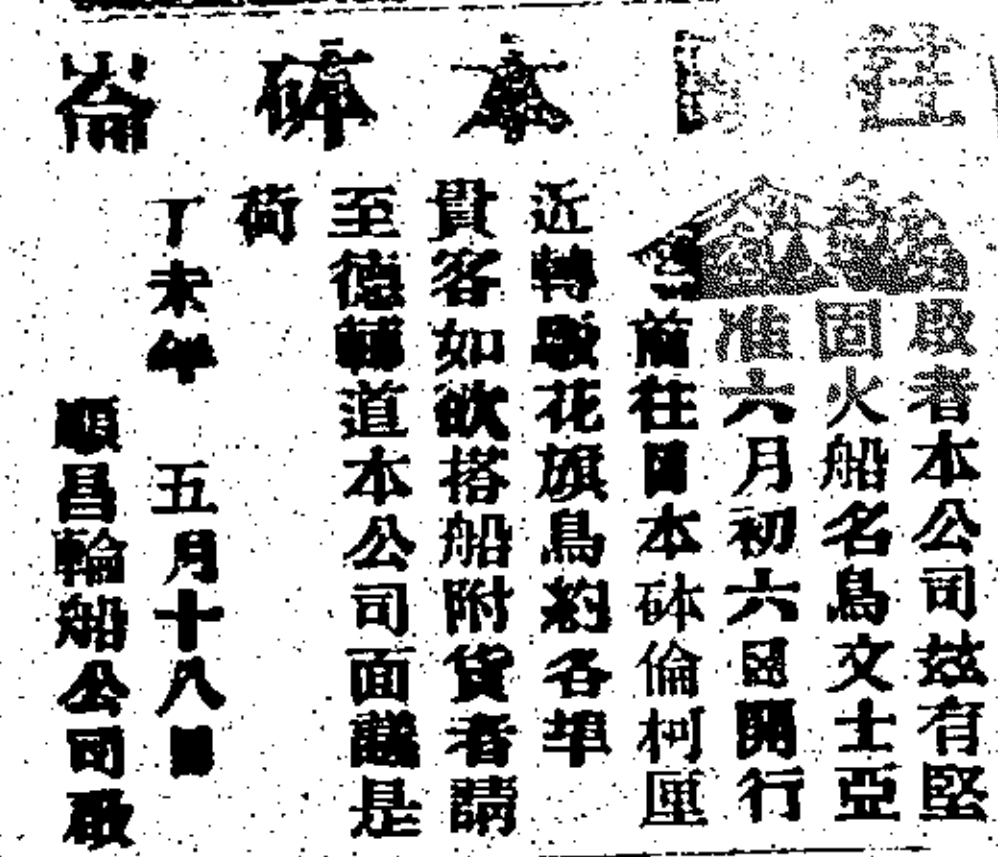 往日本砵崙
啟者本公司茲有堅
固火船名鳥文士亞
准六月初六日開行
前往日本砵倫柯厘
近轉駁花旗鳥約各埠
貴客如欲搭船附貨者請
至德輔道本公司面議是
荷
丁未年 五月十八日
順昌輪船公司啟